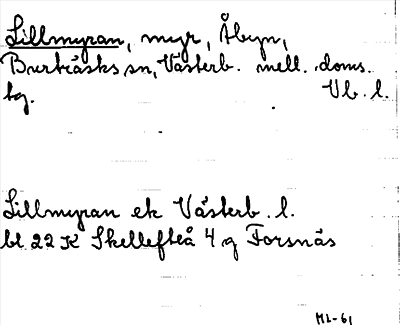 Lillmyran, myr, Åbyn,
Burträsks sn, Västerb. mell. doms.
tg. Vb. l.
Lillmyran ek Västerb. l.
bl 22 K Skellefteå 4 g Forsnäs
ML-61